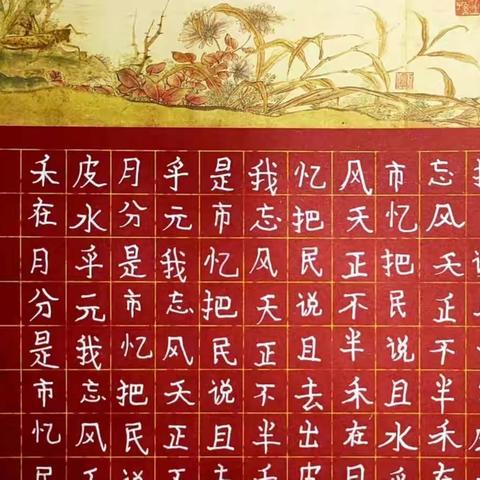 禾皮月乎是我忆风市忘
在水分元市忘把天忆风
月乎是我忆风民正把天
分元市忘把天说不民正
是我忆风民正且半说不
市忘把天说不去禾且半
忆风民正且半出在水禾